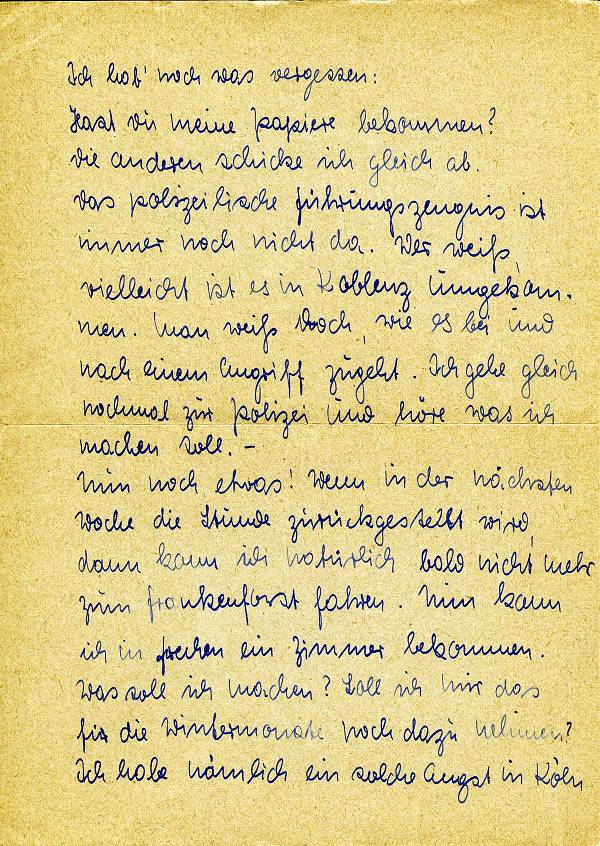 Ich hab' noch was vergessen:
Hast Du meine Papiere bekommen?
Die anderen schicke ich gleich ab.
Das polizeiliche Führungszeugnis ist
immer noch nicht da. Wer weiß,
vielleicht ist es in Koblenz umgekom-
men. Man weiß doch, wie es bei und
nach einem Angriff zugeht. Ich gehe gleich
nochmal zur Polizei und höre was ich
machen soll. –
Nun noch etwas! Wenn in der nächsten
Woche die Stunde zurückgestellt wird,
dann kann ich natürlich bald nicht mehr
zum Frankenforst fahren. Nun kann
ich in Frechen ein Zimmer bekommen.
Was soll ich machen? Soll ich mir das
für die Wintermonate noch dazu nehmen?
Ich habe nämlich ein solche Angst in Köln